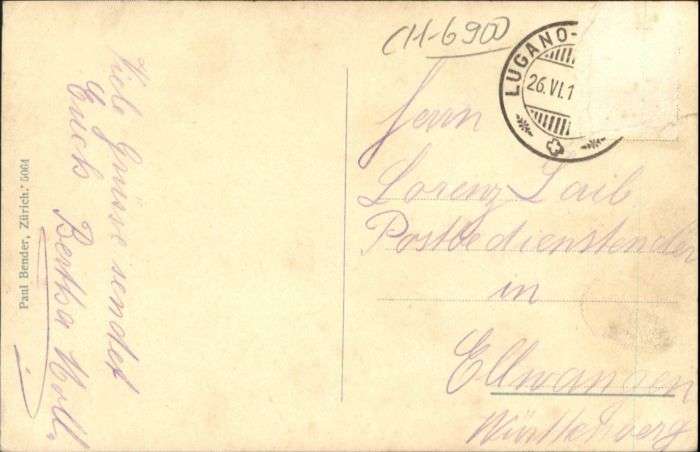 CH-6900
LUGANO-
26.VI.1
Viele Grüsse sendet
Euch Bertha Moll.
Paul Bender, Zürich. 5064
Herrn
Lorenz Laib
Postbediensteter
in
Ellwangen
Württemberg